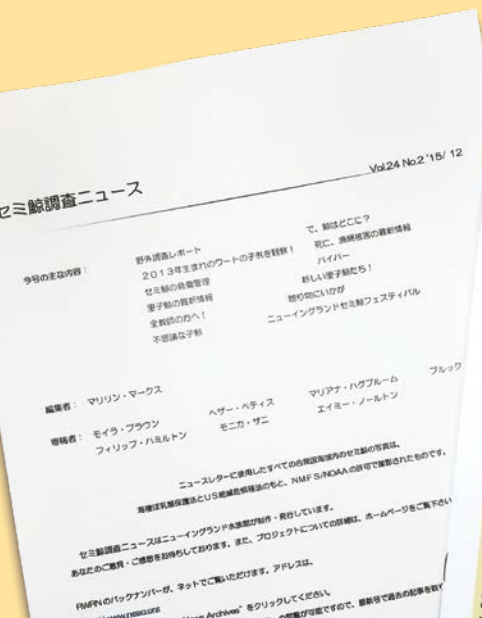 セミ鯨調査ニュース
Vol.24 No.2 '15/ 12
今号の主な内容：
野外調査レポート
２０１３年生まれのワートの子供を観察！
セミ鯨の負傷管理
里子鯨の最新情報
全教師の方へ！
不思議な子鯨
で、鯨はどこに？
死亡、漁網被害の最新情報
ハイパー
新しい里子鯨たち！
贈り物にいかが
ニューイングランドセミ鯨フェスティバル
編集者： マリリン・マークス
寄稿者： モイラ・ブラウン ヘザー・ペティス マリアナ・ハグブルーム ブルック
フィリップ・ハミルトン モニカ・ザニ エイミー・ノールトン
ニュースレターに使用したすべての合衆国海域内のセミ鯨の写真は、
海棲ほ乳類保護法とＵＳ絶滅危惧種法のもと、ＮＭＦＳ/NOAAの許可で撮影されたものです。
セミ鯨調査ニュースはニューイングランド水族館が制作・発行しています。
あなたのご意見・ご感想をお待ちしております。また、プロジェクトについての詳細は、ホームページをご覧下さい
RWRNのバックナンバーが、ネットでご覧いただけます。アドレスは、
www.neaq.org
Archives" をクリックしてください。
の閲覧が可能ですので、最新号で過去の記事を取り